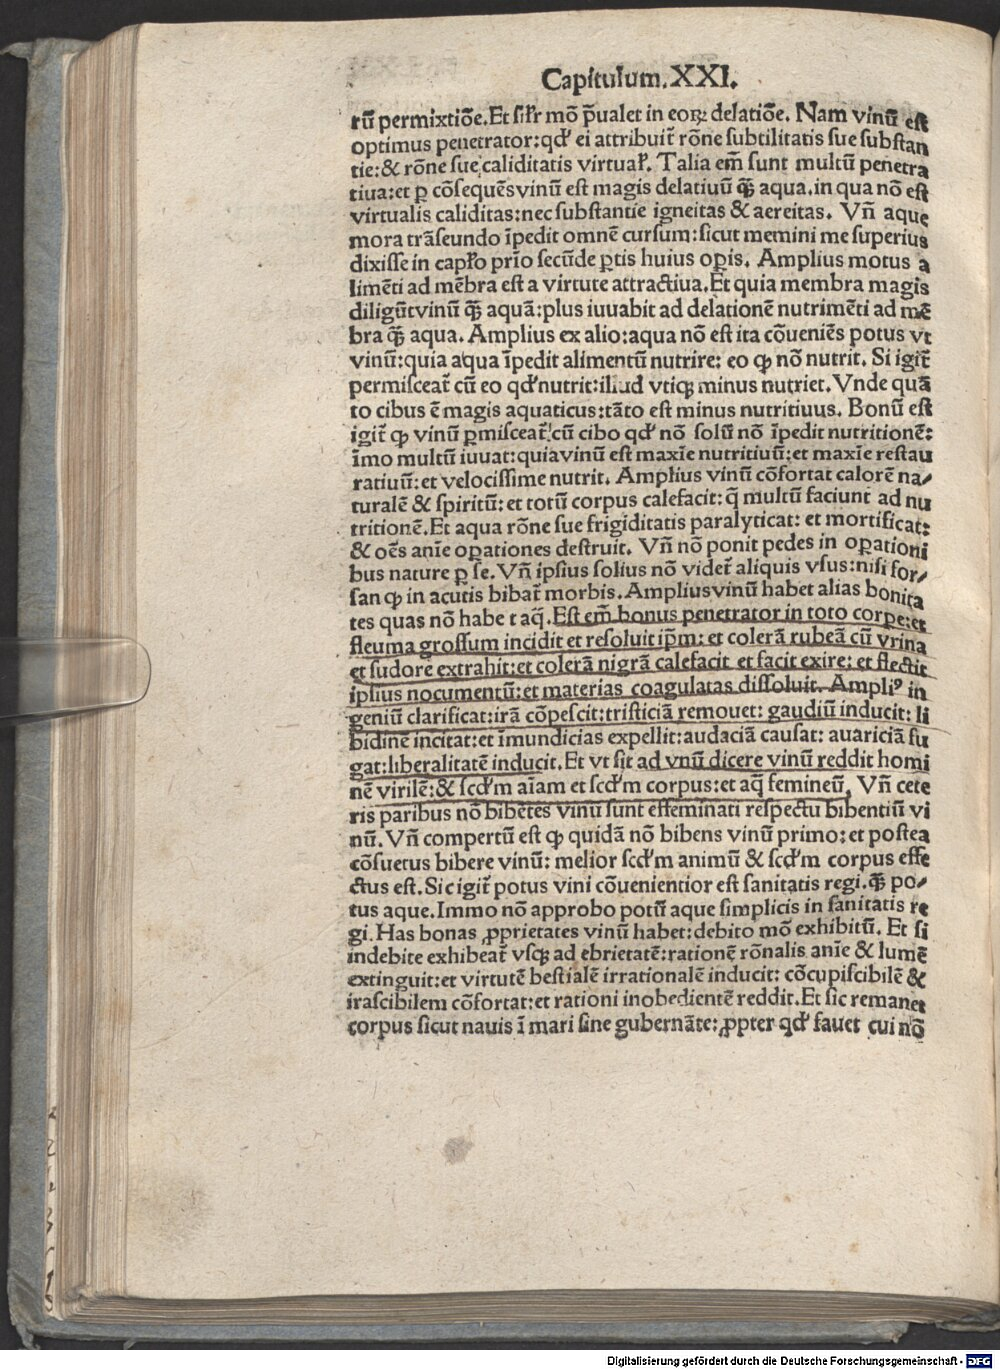 Capitulum.XXI.
rū permixtiōe.Et sil̄r mō p̄ualet in eoꝝ delatiōe. Nam vinū est
optimus penetrator:qd' ei attribuit̄ rōne subtilitatis sue substan
tie:& rōne sue caliditatis virtual̄. Talia em̄ sunt multū penetra
tiua:et ꝑ cōsequēs vinū est magis delatiuū q̄ꝫ aqua.in qua nō est
virtualis caliditas:nec substantie igneitas & aereitas. Vn̄ aque
mora trāseundo īpedit omnē cursum:sicut memini me superius
dixisse in capl̄o prīo secūde ꝑtis huius oꝑis. Amplius motus a
limēti ad mēbra est a virtute attractiua.Et quia membra magis
diligūt vinū q̄ꝫ aquā:plus iuuabit ad delationē nutrimēti ad mē
bra q̄ꝫ aqua. Amplius ex alio:aqua nō est ita cōueniēs potus vt
vinū:quia aqua īpedit alimentū nutrire: eo ꝙ nō nutrit. Si igit̄
permisceat̄ cū eo qd' nutrit:illud vtiqꝫ minus nutriet. Vnde quā
to cibus ē magis aquaticus:tāto est minus nutritiuus. Bonū est
igit̄ ꝙ vinū ꝑmisceat̄ cū cibo qd' nō solū nō īpedit nutritionē:
īmo multū iuuat:quia vinū est maxīe nutritiuū:et maxīe restau
ratiuū:et velocissime nutrit. Amplius vinū cōfortat calorē na⸗
turalē & spiritū:et totū corpus calefacit:q̄ multū faciunt ad nu
tritionē.Et aqua rōne sue frigiditatis paralyticat: et mortificat:
& oēs anīe oꝑationes destruit. Vn̄ nō ponit pedes in oꝑationi
bus nature ꝑ se. Vn̄ ipsius solius nō videt̄ aliquis vsus:nisi for⸗
san ꝙ in acutis bibat̄ morbis. Amplius vinū habet alias bonita
tes quas nō habet aq̄. Est em̄ bonus penetrator in toto corpe:et
fleuma grossum incidit et resoluit ip̄m: et colerā rubeā cū vrina
et sudore extrahit:et colerā nigrā calefacit et facit exire: et flectit
ipsius nocumentū:et materias coagulatas dissoluit. Ampliꝰ in
geniū clarificat:irā cōpescit:tristiciā remouet: gaudiū inducit: li
bidinē incitat:et īmundicias expellit:audaciā causat: auariciā fu
gat:liberalitatē inducit. Et vt sit ad vnū dicere vinū reddit homi
nē virilē:& scd'm aīam et scd'm corpus:et aq̄ femineū. Vn̄ cete
ris paribus nō bibētes vinū sunt effeminati respectu bibentiū vi
nū. Vn̄ compertū est ꝙ quidā nō bibens vinū primo:et postea
cōsuetus bibere vinū: melior scd'm animū & scd'm corpus effe
ctus est. Sic igit̄ potus vini cōuenientior est sanitatis regi.q̄ꝫ po⸗
tus aque.Immo nō approbo potū aque simplicis in sanitatis re
gi.Has bonas ꝓprietates vinū habet:debito mō exhibitū. Et si
indebite exhibeat̄ vsqꝫ ad ebrietatē:rationē rōnalis anīe & lumē
extinguit:et virtutē bestialē irrationalē inducit: cōcupiscibilē &
irascibilem cōfortat:et rationi inobedientē reddit.Et sic remanet
corpus sicut nauis ī mari sine gubernāte: ꝓpter qd' fauet cui nō
Digitalisierung gefördert durch die Deutsche Forschungsgemeinschaft - DFG